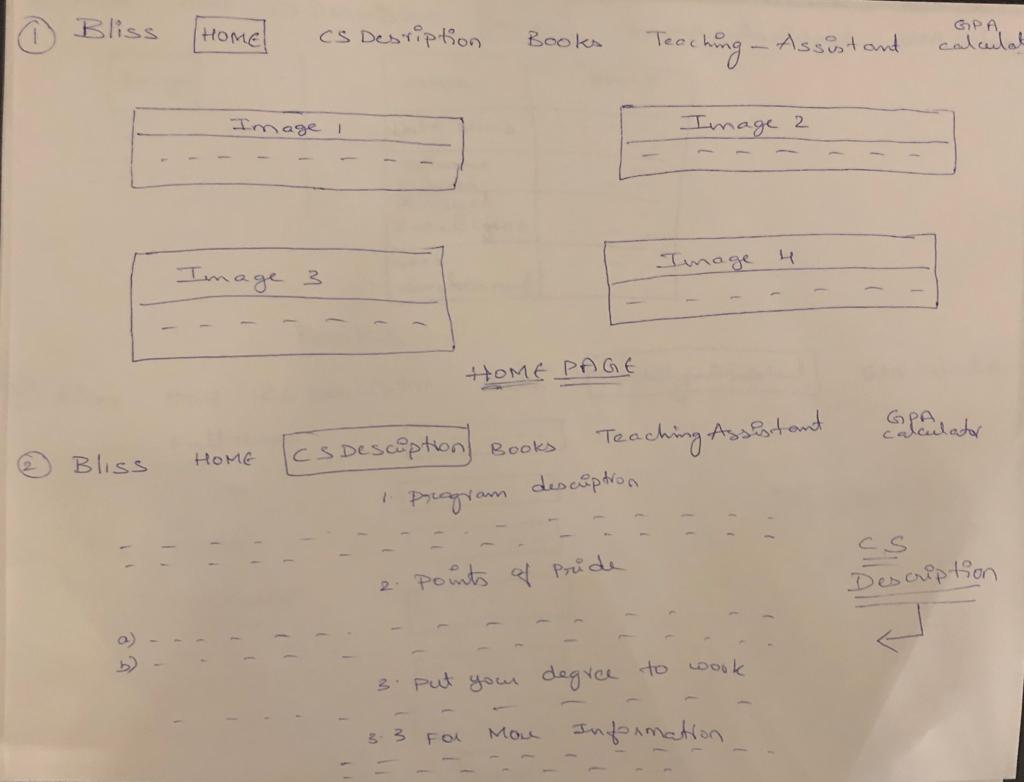 1 Bliss HOME CS Desription Books Teaching - Assistant GPA calculat
Image 1 Image 2
Image 3 Image 4
HOME PAGE
2 Bliss HOME CS Description Books Teaching Assistant GPA calculator
1. Program description
2. Points of Pride
CS
Description
a)
b)
3. Put your degree to work
3.3 For More Information